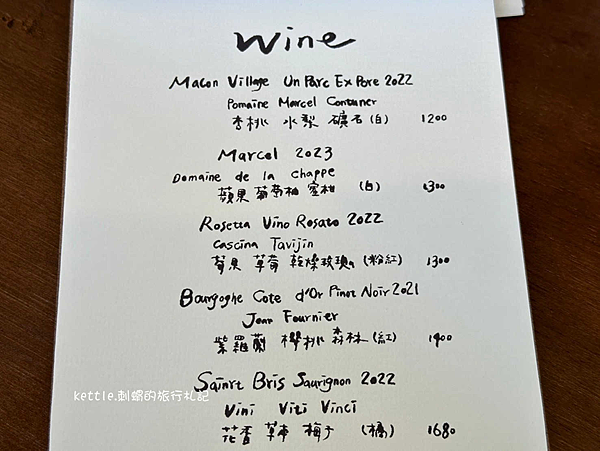 Wine
Macon Village Un Parc Ex Pore 2022
Pomaine Marcel Contuner
杏桃 水梨 礦石 (白) 1200
Marcel 2023
Domaine de la chappe
蘋果 葡萄柚 蜜柑 (白) 1300
Rosetta Vino Rosato 2022
Cascina Tavijin
莓果 草莓 乾燥玫瑰 (粉紅) 1300
Bourgoghe Cote d'Or Pinot Noir 2021
Jean Fournier
紫羅蘭 櫻桃 森林 (紅) 1900
Sainrt Bris Saurignon 2022
Vini Viti Vinci
花香 草本 梅子 (橘) 1680
kettle.刺蝟的旅行札記